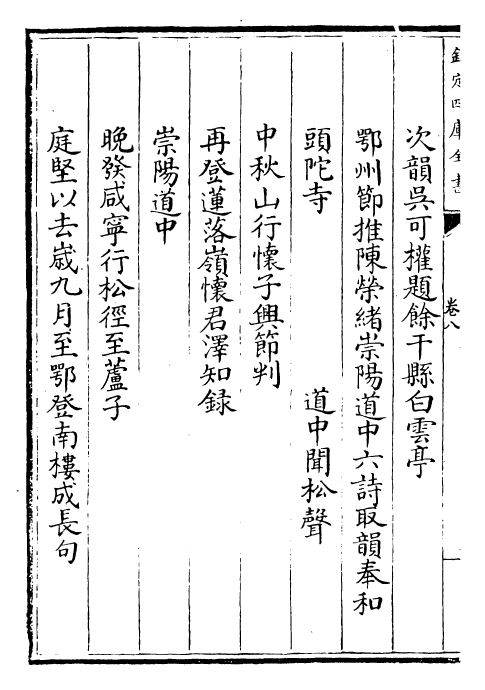 欽定四庫全書
卷八
次韻吳可權題餘干縣白雲亭
鄂州節推陳榮緒崇陽道中六詩取韻奉和
頭陀寺　道中聞松聲
中秋山行懷子輿節判
再登蓮落嶺懷君澤知録
崇陽道中
晚發咸寧行松徑至蘆子
庭堅以去歲九月至鄂登南樓成長句